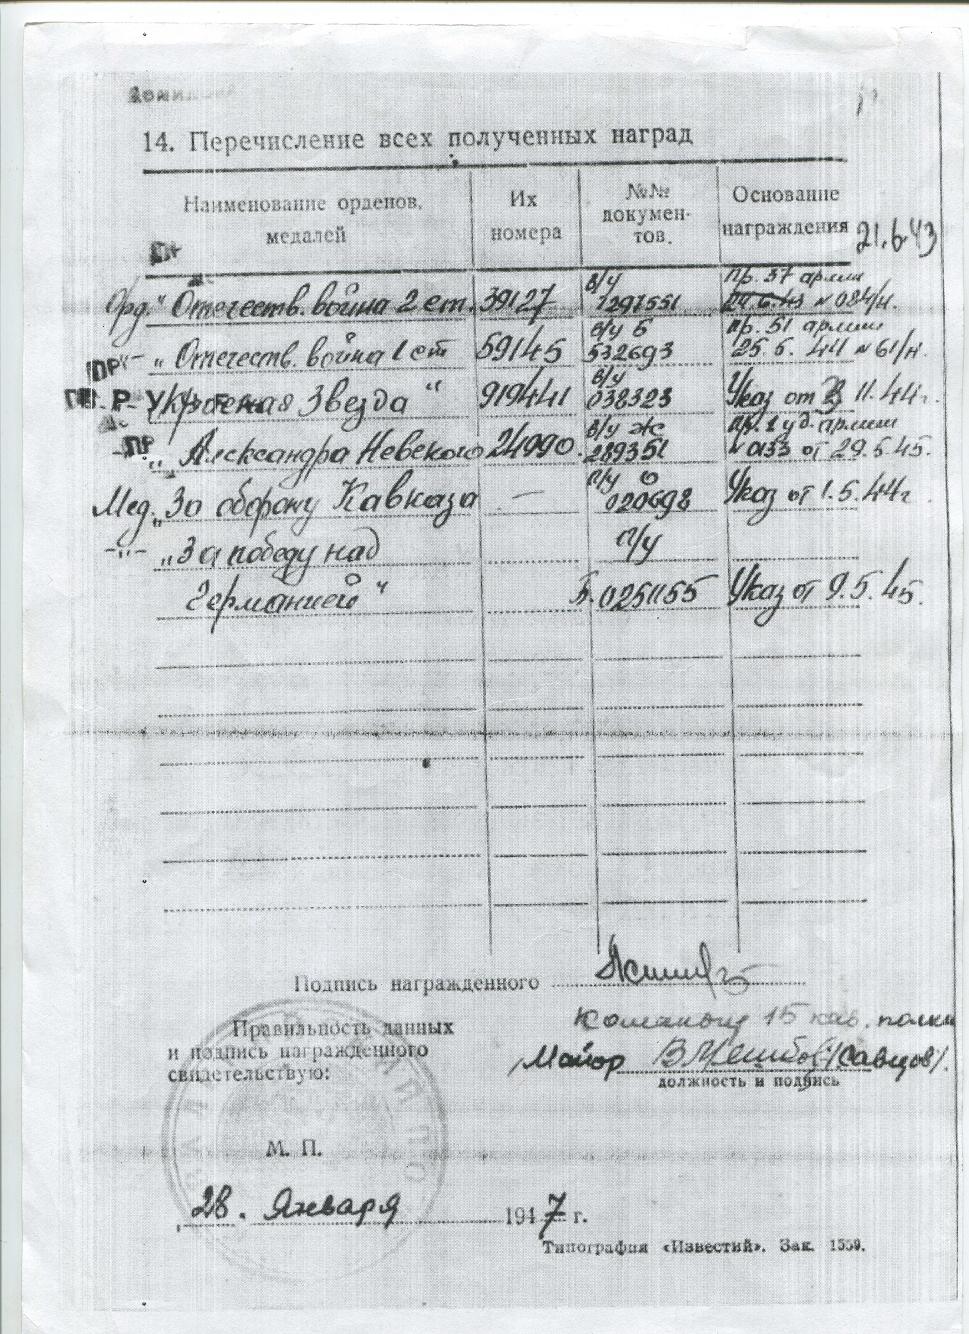 14. Перечисление всех полученных наград
Наименование орденов, медалей
Их номера
№№ докумен-тов.
Основание награждения
21.6.43
Орд. „Отечеств. война 2 ст. 39127 в/у 1297551 Пр. 37 армии № 084/н.
„Отечеств. война 1 ст 59145 в/у Б 532693 Пр. 51 армии 25.5.44 № 61/н.
Красная Звезда“ 919441 в/у 038323 Указ от 3 11.44г.
„Александра Невского 24990. в/у Ж 289351 Пр. 1 уд. армии № 0133 от 29.5.45.
Мед. „За оборону Кавказа — О 020698 Указ от 1.5.44г
-„- „За победу над п/у
Германией“ Б.0251155 Указ от 9.5.45.
Подпись награжденного
Правильность данных
и подпись награжденного
свидетельствую:
15 кав. полка
Майор (Савцов).
должность и подпись
М. П.
28. Января 1947 г.
Типография «Известий». Зак. 1559.